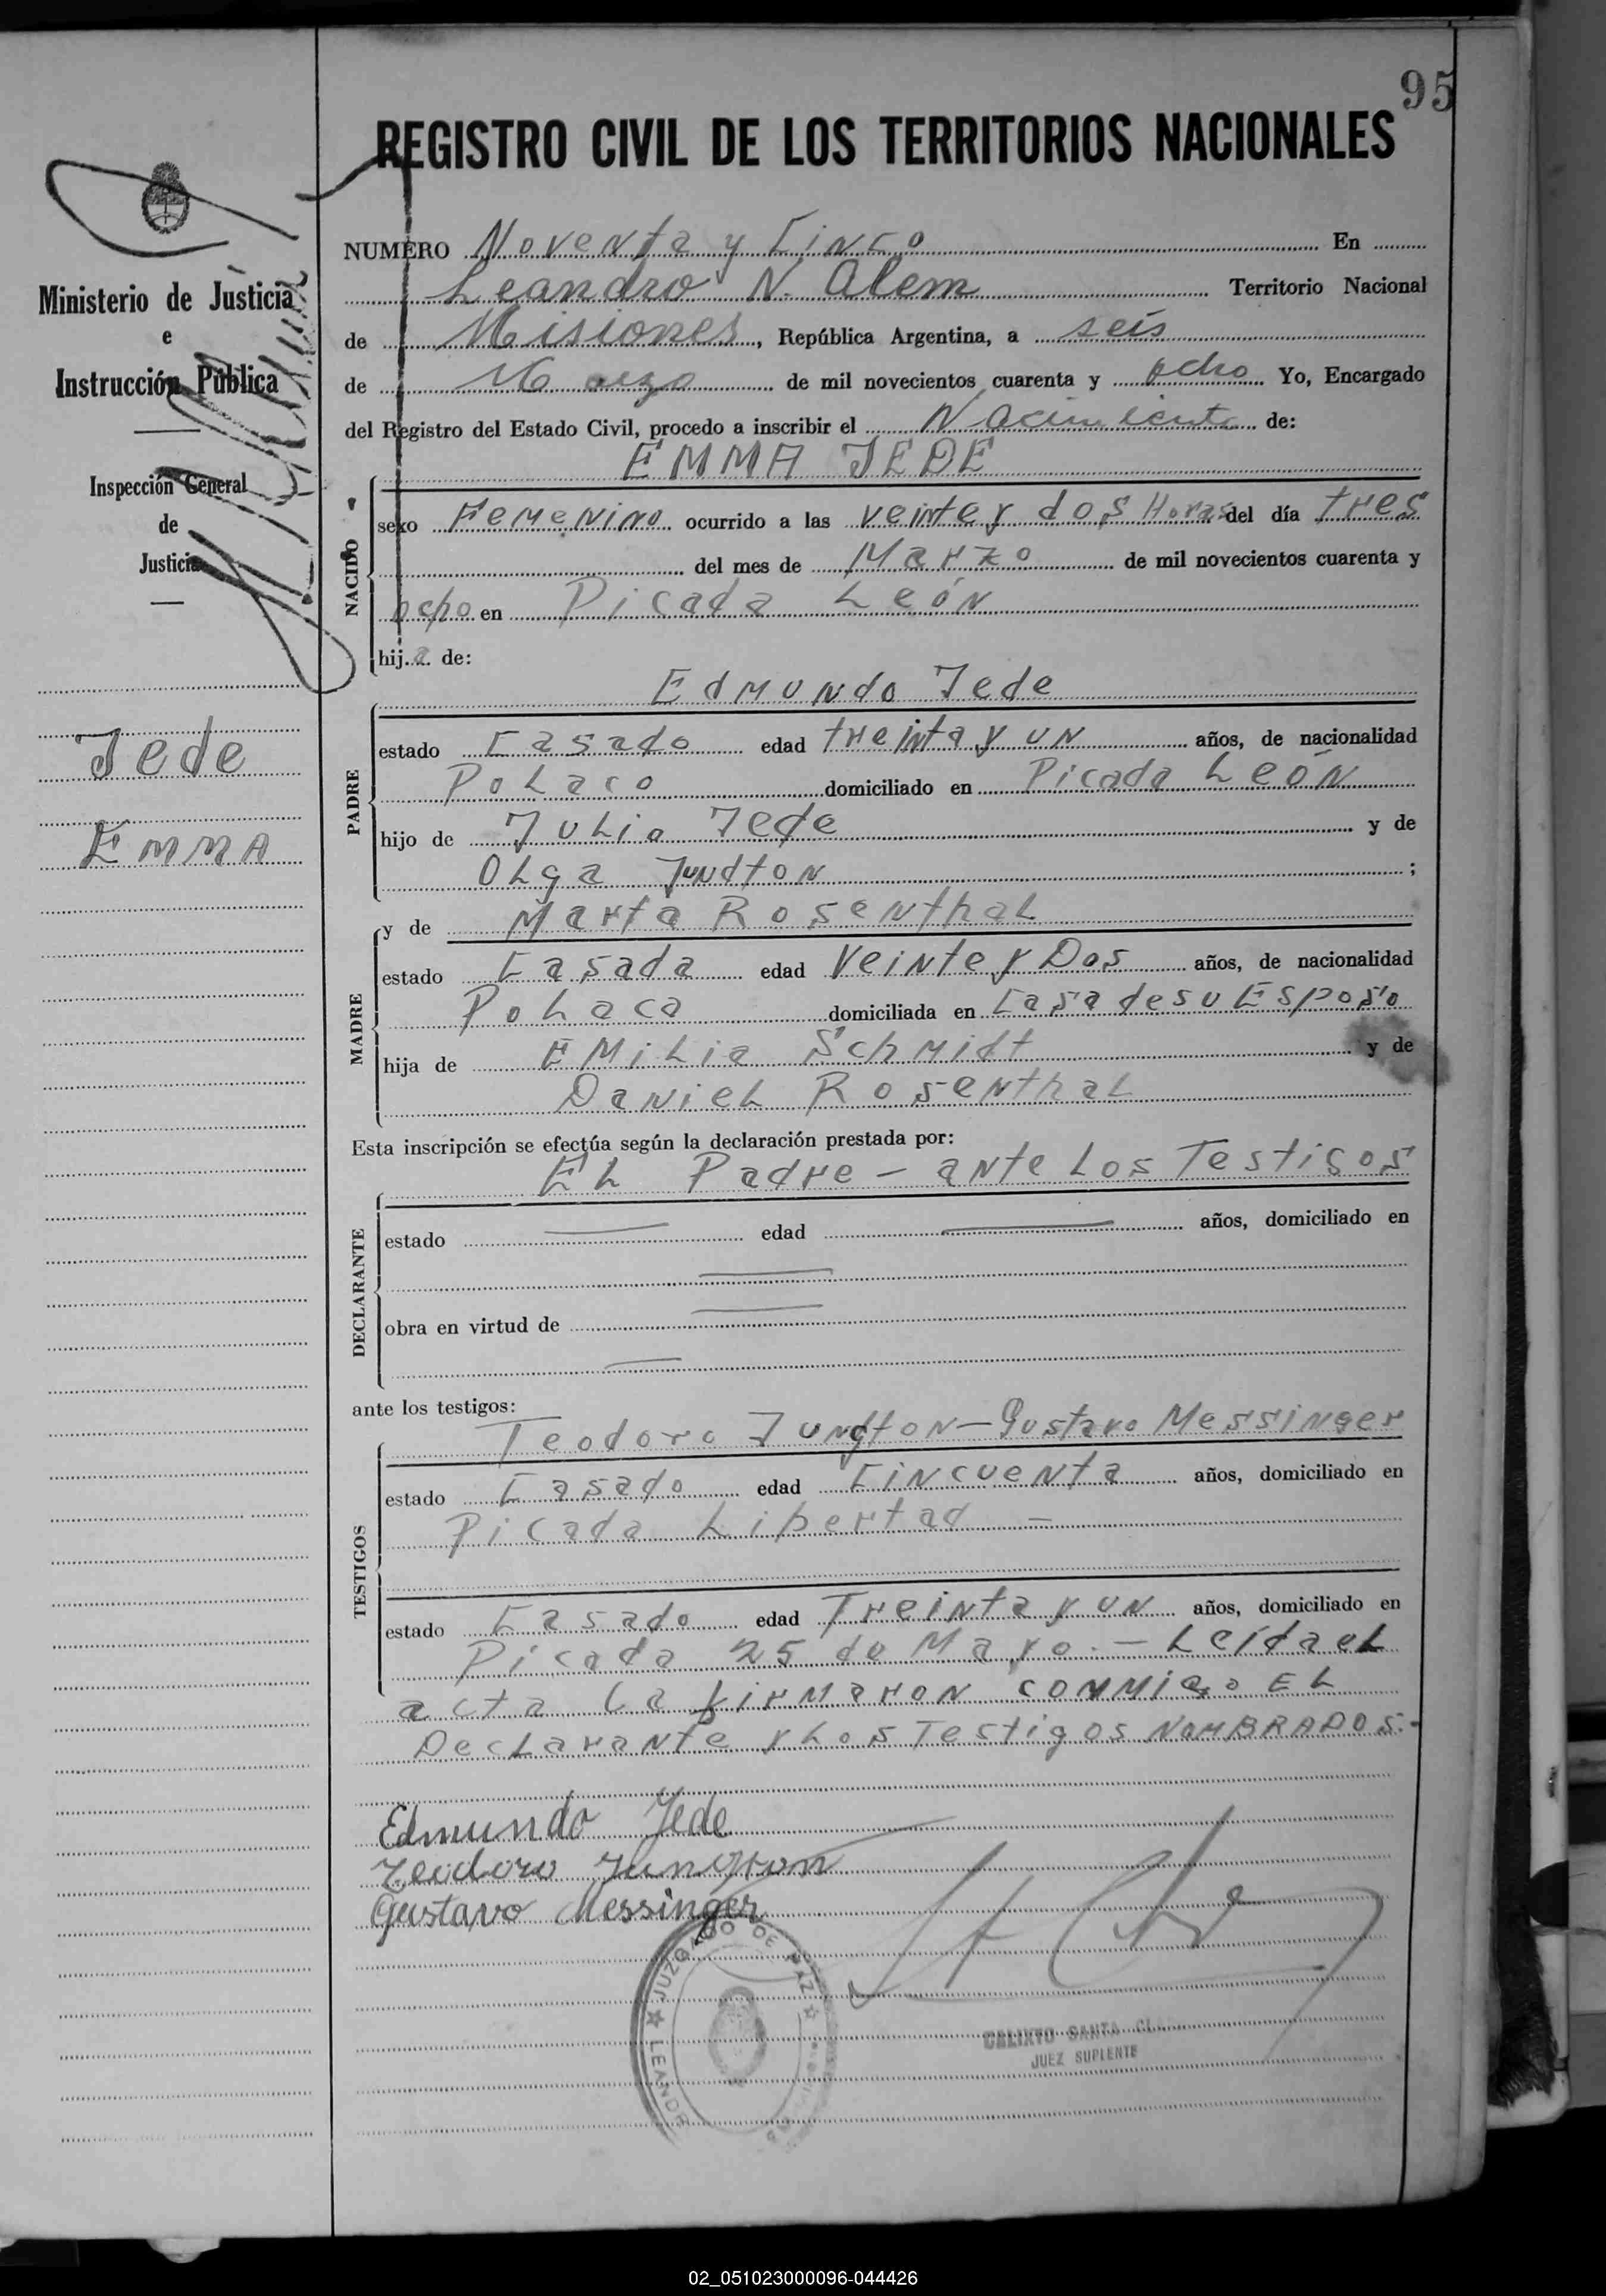 95
REGISTRO CIVIL DE LOS TERRITORIOS NACIONALES
Ministerio de Justicia
e
Instrucción Pública
Inspección General
de
Justicia
Jede
EMMA
NUMERO Noventa y Cinco En
Leandro N. Alem Territorio Nacional
de Misiones, República Argentina, a seis
de Marzo de mil novecientos cuarenta y ocho Yo, Encargado
del Registro del Estado Civil, procedo a inscribir el Nacimiento de:
EMMA JEDE
NACIDO
sexo Femenino ocurrido a las veinte y dos Horas del día tres
del mes de Marzo de mil novecientos cuarenta y
ocho en Picada León
hija de:
Edmundo Jede
PADRE
estado Casado edad treinta y un años, de nacionalidad
Polaco domiciliado en Picada León
hijo de Julio Jede y de
Olga Jundton ;
MADRE
y de Marta Rosenthal
estado Casada edad Veinte y Dos años, de nacionalidad
Polaca domiciliada en Casa de su Esposo
hija de Emilia Schmidt y de
Daniel Rosenthal
Esta inscripción se efectúa según la declaración prestada por:
El Padre - ante Los Testigos
DECLARANTE
estado edad años, domiciliado en
obra en virtud de
ante los testigos:
Teodoro Jungton - Gustavo Messinger
TESTIGOS
estado Casado edad Cincuenta años, domiciliado en
Picada Libertad -
estado Casado edad Treinta y un años, domiciliado en
Picada 25 de Mayo. - Leída el
acta la firmaron conmigo El
Declarante y Los Testigos NOMBRADOS.-
Edmundo Jede
Teodoro Jungton
Gustavo Messinger
JUZGADO DE PAZ
LEANDR
CALIXTO SANTA
JUEZ SUPLENTE
02_051023000096-044426